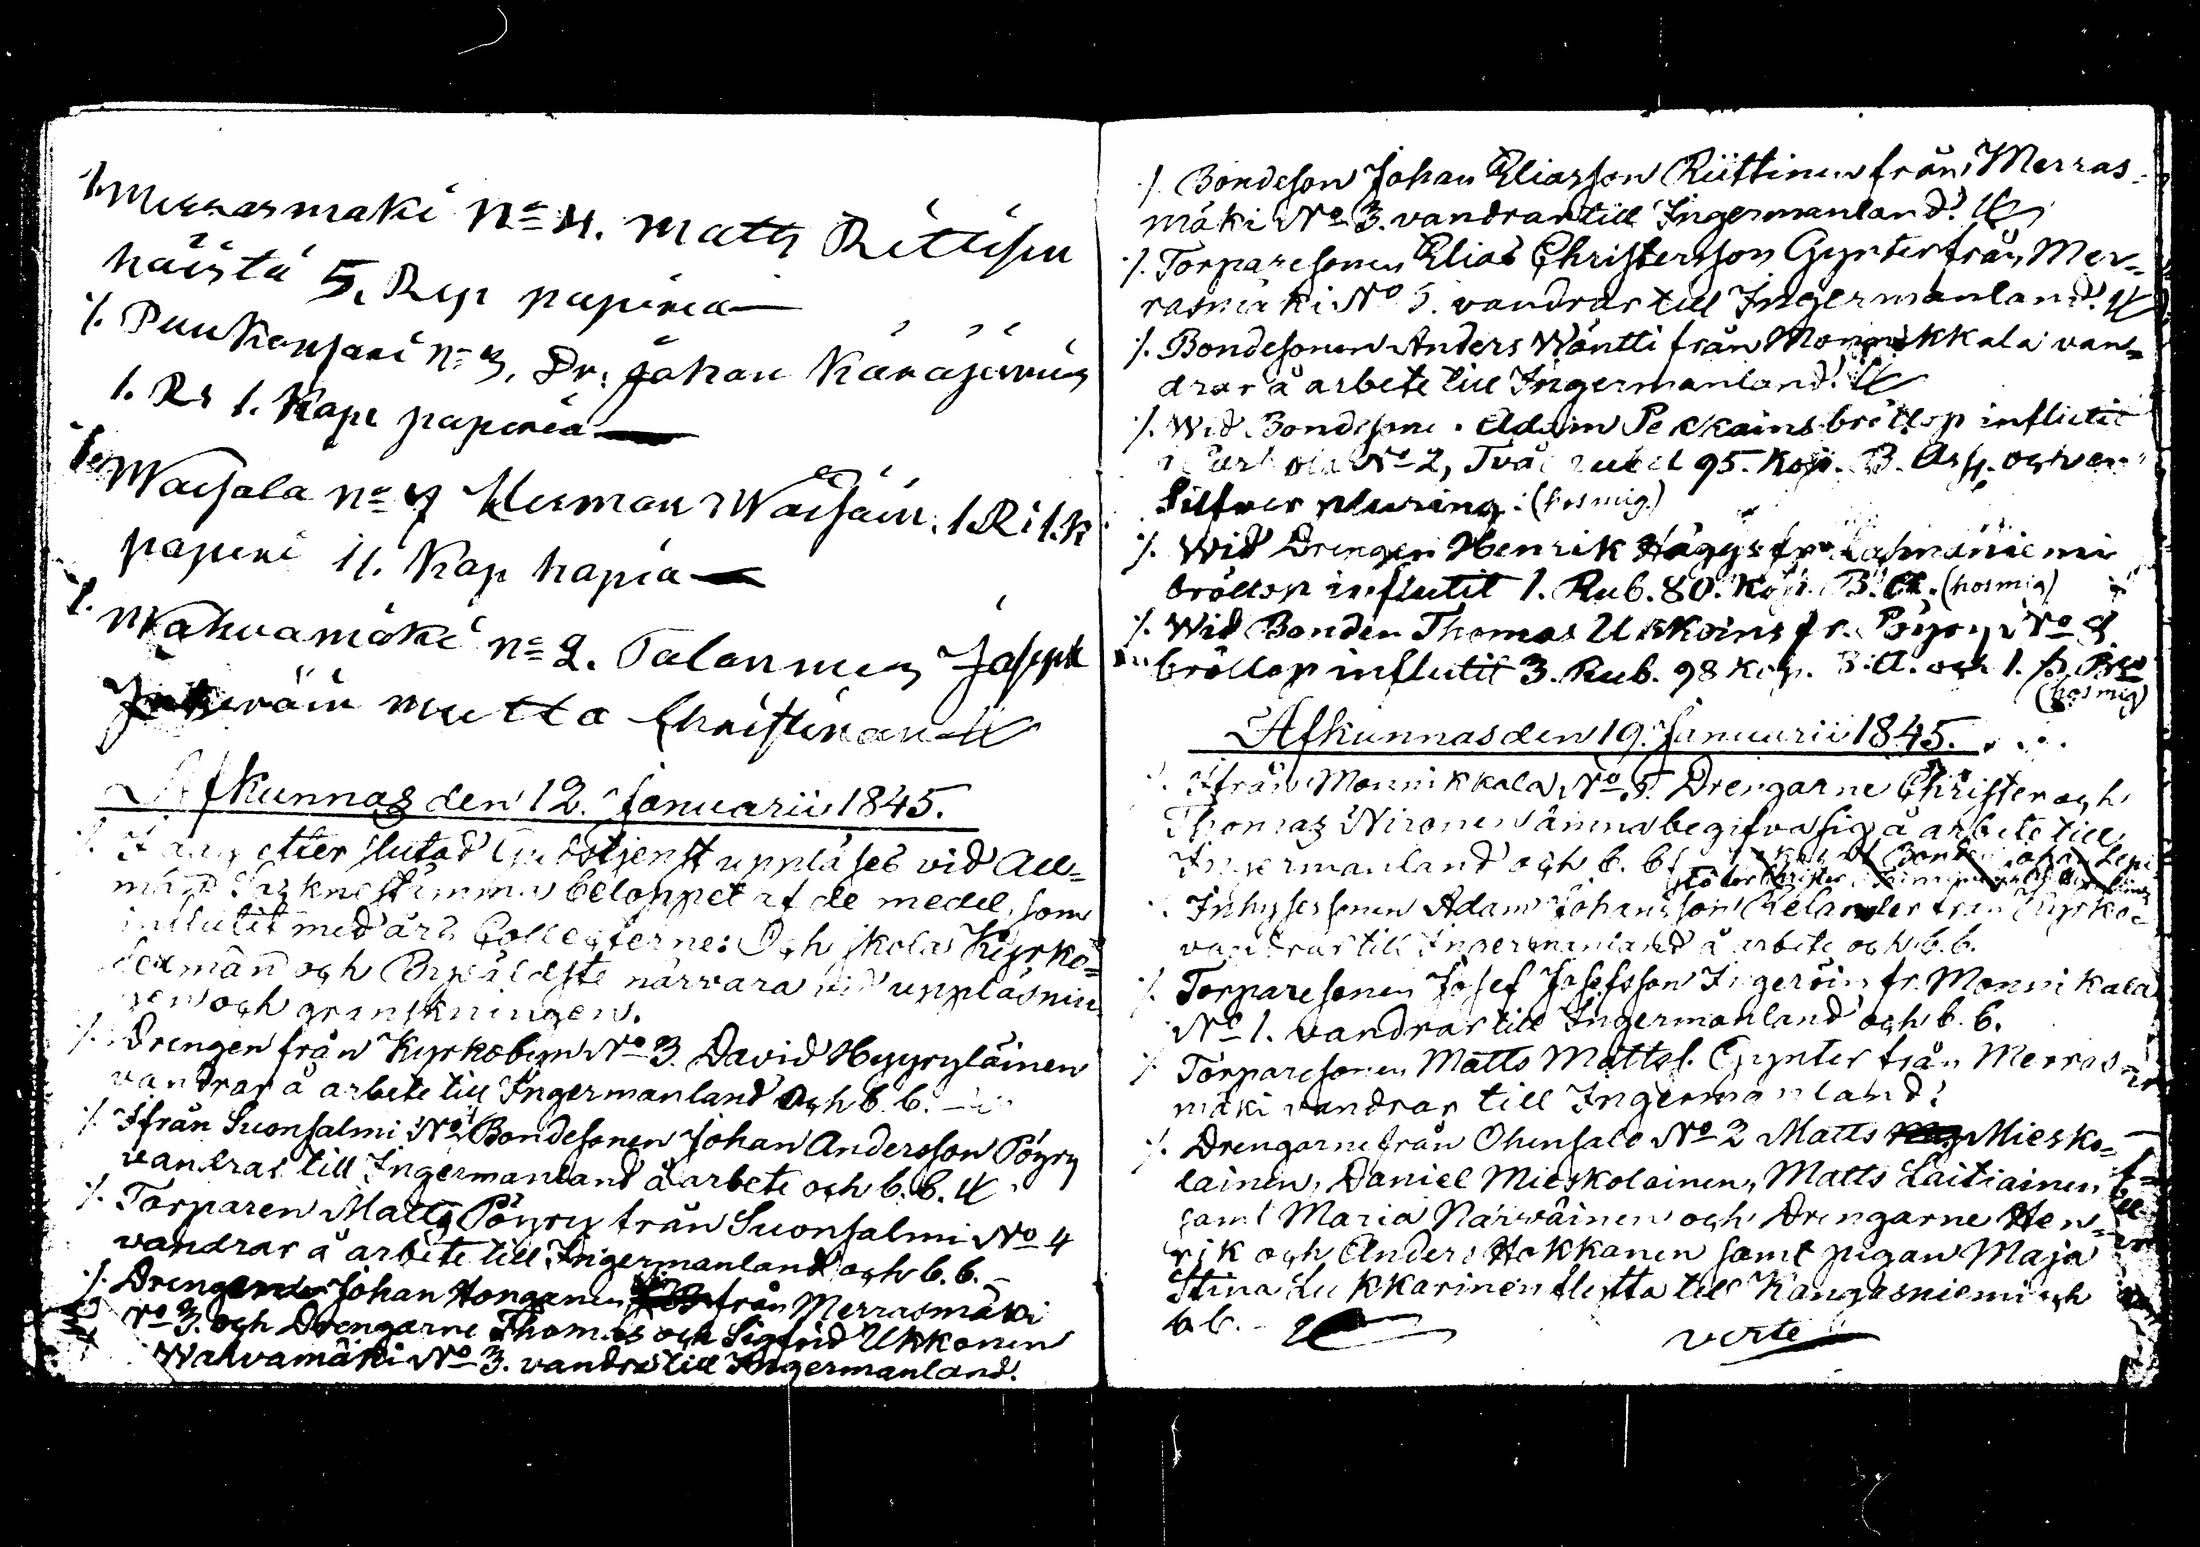 ⁒ Merrasmäki No 4. Matts Rittisen
häistä 5. Kop papiria
⁒ Puukonsari No 3. Dr: Johan Käräjärvin
1. Rs 1. Kape papiria
⁒ Waisala No 7 Herman Waisäin. 1. R: 1. K
papiri 11. Kap hapia
⁒ Wahvamäki No 2. Talan Joseph
muutta Christinan
Afkunnas den 12. Januarii 1845.
⁒ I dag efter slutad Gudstjenst uppläses vid All=
män Söcknestämma beloppet af de medel, som
influtit med års Collecterne: Och skola Kyrko=
och Byeäldste närvara vid uppläsnin
gen och granskningen.
⁒ Drengen från Kyrkobyn No 3. David Hyyryläinen
vandrar å arbete till Ingermanland Och b. b.
⁒ Ifrån Suonsalmi No Bondesonen Johan Andersson Pöyry
vandrar till Ingermanland å arbete och b. b.
⁒ Torparen Matts Pöyry från Suonsalmi No 4
vandrar å arbete till Ingermanland och b. b.
⁒ Johan Honganen från Merrasmäki
No 3. och Drengarne Thomas och Sigfrid Ukkonen
Wahvamäki No 3. vandra till Ingermanland.
⁒ Bondeson Johan Eliasson Riittinen från Merras=
mäki No 3. vandrar till Ingermanland.
⁒ Torparesonen Elias Christersson Gynter från Mer=
rasmäki No 5. vandrar till Ingermanland.
⁒ Bondesonen Anders Wäntti från Monnikkala van=
drar å arbete till Ingermanland.
⁒ Wid Bondesone. Adam Peckains bröllop influtit
No 2, Två rubel 95. Kop. B. Ass. och en
Silfver (hos mig)
⁒ Wid Drengen Henrik Häggs fr.
bröllop influtit 1. Rub. 80. Kop. B. A. (hos mig)
⁒ Wid Bonden Thomas Ukkoins fr. Pöyry No
bröllop influtit 3. Rub. 98 kop. B. A. och 1.
(hos mig)
Afkunnas den 19. Januarii 1845.
⁒ Ifrån Monnikkala No 5. Drengarne Christer och
Thomas Nironen ämna begifva sig å arbete till
Ingermanland och b. b.
⁒ Inhysessonen Adam Johansson från Kyrko=
vandrar till Ingermanland å arbete och b. b.
⁒ Torparesonen Josef Josefsson Ingeröin fr. Monnikala
No 1. vandrar till Ingermanland och b. b.
⁒ Torparesonen Matts Mattss. Gynter från Merras=
mäki vandrar till Ingermanland.
⁒ Drengarne från Ohensalo No 2 Matts Miesko=
lainen, Daniel Mieskolainen, Matts Laitiainen,
samt Maria Närwäinen och Drengarne Hen=
rik och Anders Hokkanen samt pigan Maja
Stina Lukkarinen flytta till Kangasniemi och
b. b.
verte